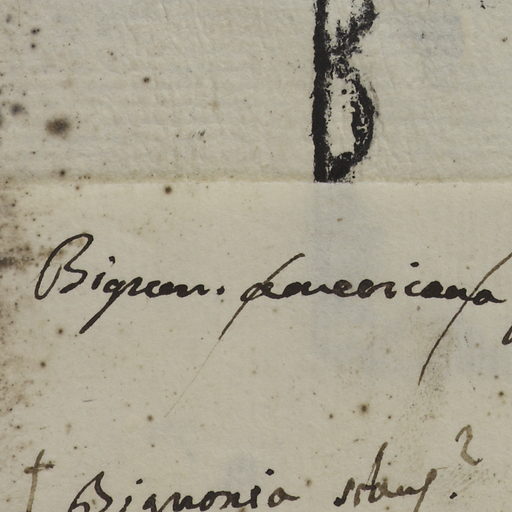 B
Bignon. americana
† Bignonia stans?